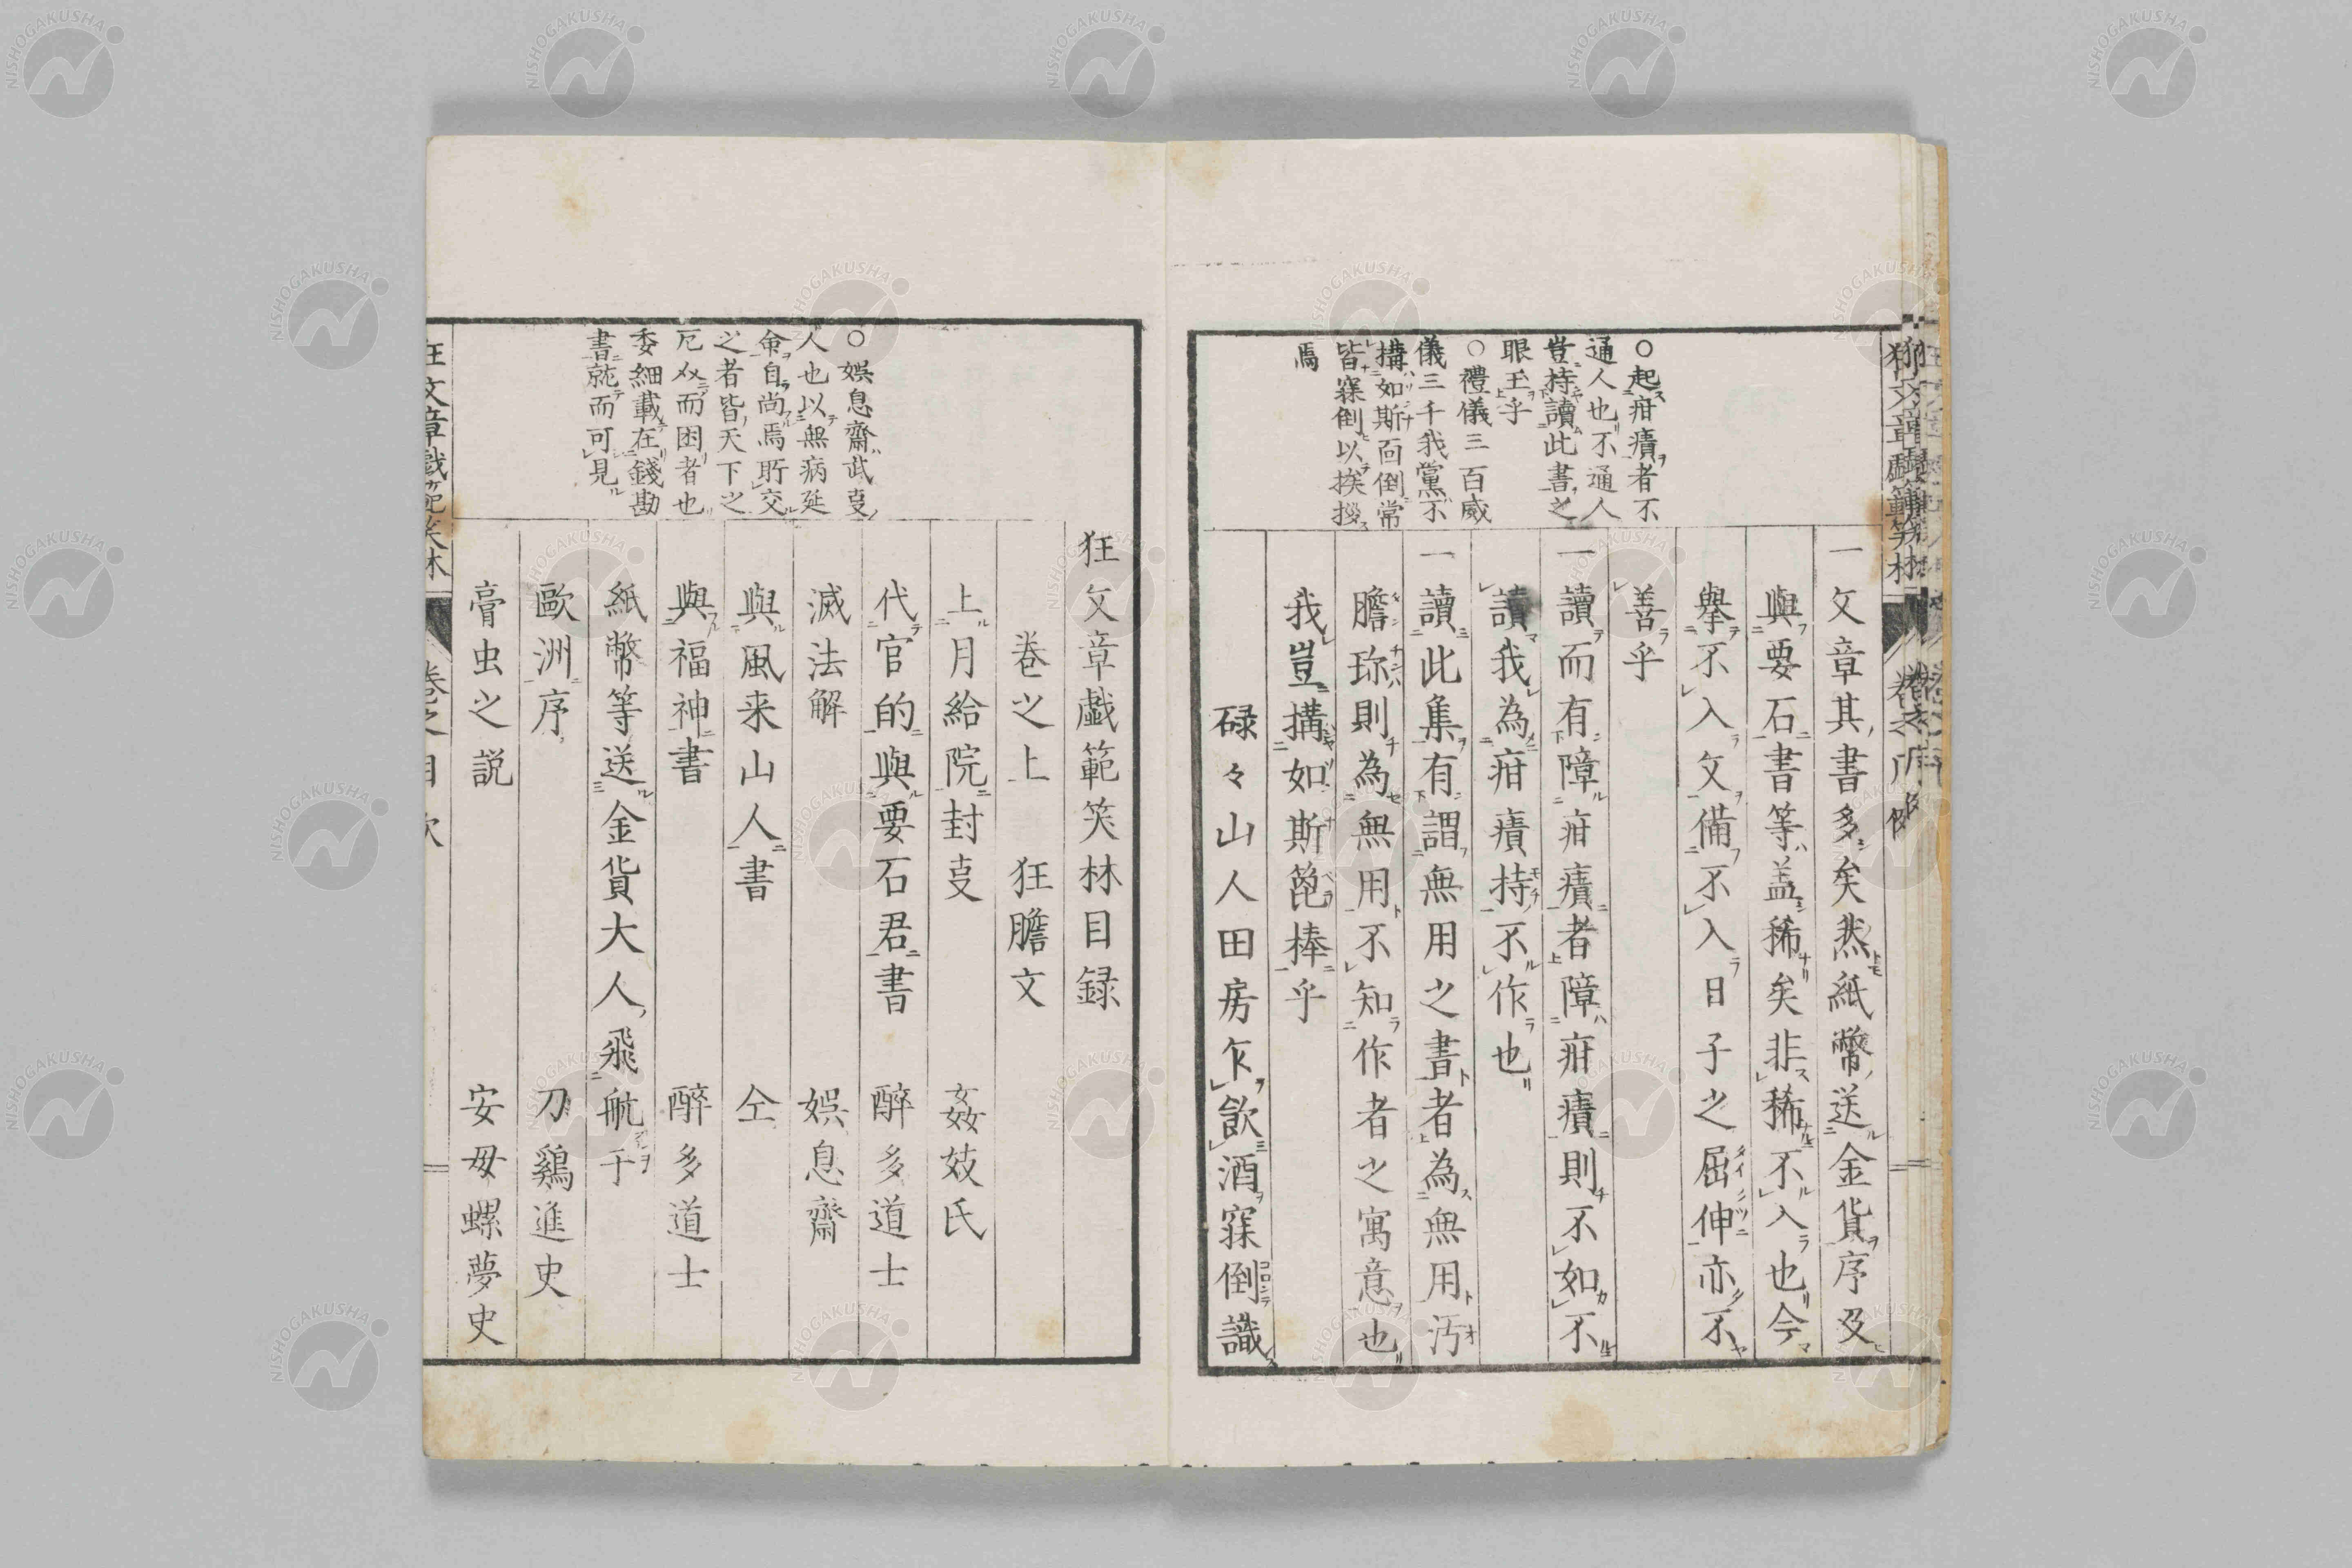 ○起疳癪者不
通人也不通人
豈持讀此書之
眼玉乎
○禮儀三百威
儀三千我黨不
搆如斯面倒常
皆寐倒以挨拶
焉
一文章其書多矣然紙幣送金貨序及
與要石書等盖稀矣非稀不入也今
擧不入文備不入日子之屈伸亦不
善乎
一讀而有障疳癪者障疳癪則不如不
讀我為疳癪持不作也
一讀此集有謂無用之書者為無用汚
膽珎則為無用不知作者之寓意也
我豈搆如斯箆棒乎
碌々山人田房乍飲酒寐倒識
○娯息齋武叓
人也以無病延
命自尚焉所交
之者皆天下之
厄〆而困者也
委細載在錢勘
書就而可見
狂文章戯範笑林目録
巻之上 狂膽文
上月給院封叓 姦妓氏
代官的與要石君書 醉多道士
滅法解 娯息齋
與風来山人書 仝
與福神書 醉多道士
紙幣等送金貨大人飛航于
歐洲序 刀鷄進史
膏虫之説 安毋螺夢史
狂文章戯範笑林 巻之目次
NISHOGAKUSHA